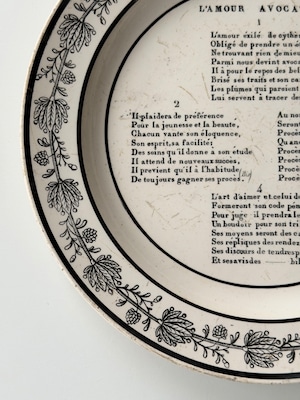 L'AMOUR AVOCA
1
L'amour éxilé de cythè
Obligé de prendre un é
Ne trouvant rien de mie
Parmi nous devint avoca
Il à pour le repos des bel
Brisé ses traits et son ca
Les plumes qui paroient
Lui servent à tracer de
2
Il plaidera de préférence
Pour la jeunesse et la beauté.
Chacun vante son éloquence,
Son esprit, sa facilités
Des soins qu'il donne à son étude
Il attend de nouveaux succès.
Il prévient qu'il à l'habitude
De toujours gagner ses procès. (bis)
Au no
Seren
Procè
Quan
Procè
Procè
Procè
Procè
4
L'art d'aimer et celui d
Formeront son code pén
Pour juge il prendra la
Un boudoir pour son tri
Ses moyens seront des ca
Ses répliques des rendez
Ses discours de tendres p
Et ses avis des — bil